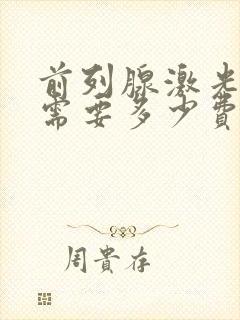 前列腺激光
需要多少费
周貴存